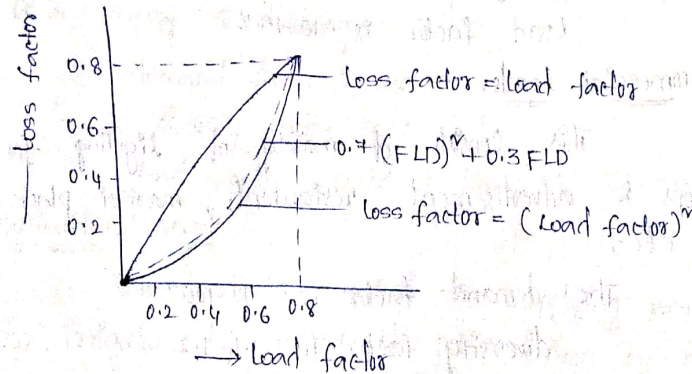 loss factor
0.8
loss factor = load factor
0.6
0.7 (FLD)² + 0.3 FLD
0.4
loss factor = (Load factor)²
0.2
0.2 0.4 0.6 0.8
→ Load factor